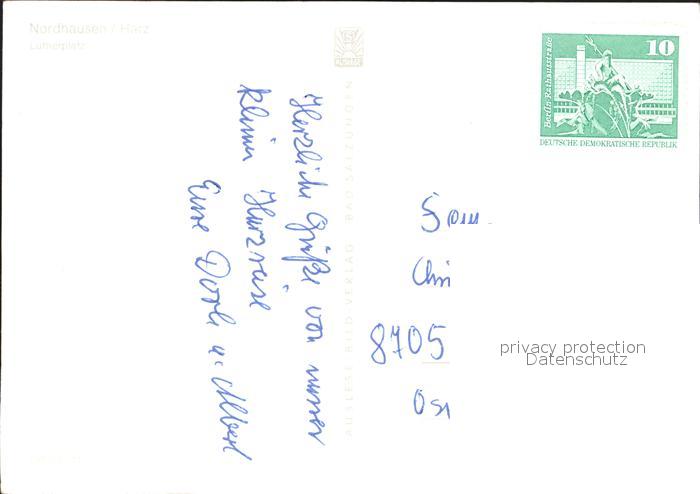 Nordhausen / Harz
Lutherplatz
Berlin-Rathausstraße
10
DEUTSCHE DEMOKRATISCHE REPUBLIK
AUSLESE BILD-VERLAG BAD SALZUNGEN
Herzliche Grüße von unserer
kleinen Harzreise
Eure Dorle u. Albert
8705
privacy protection
Datenschutz